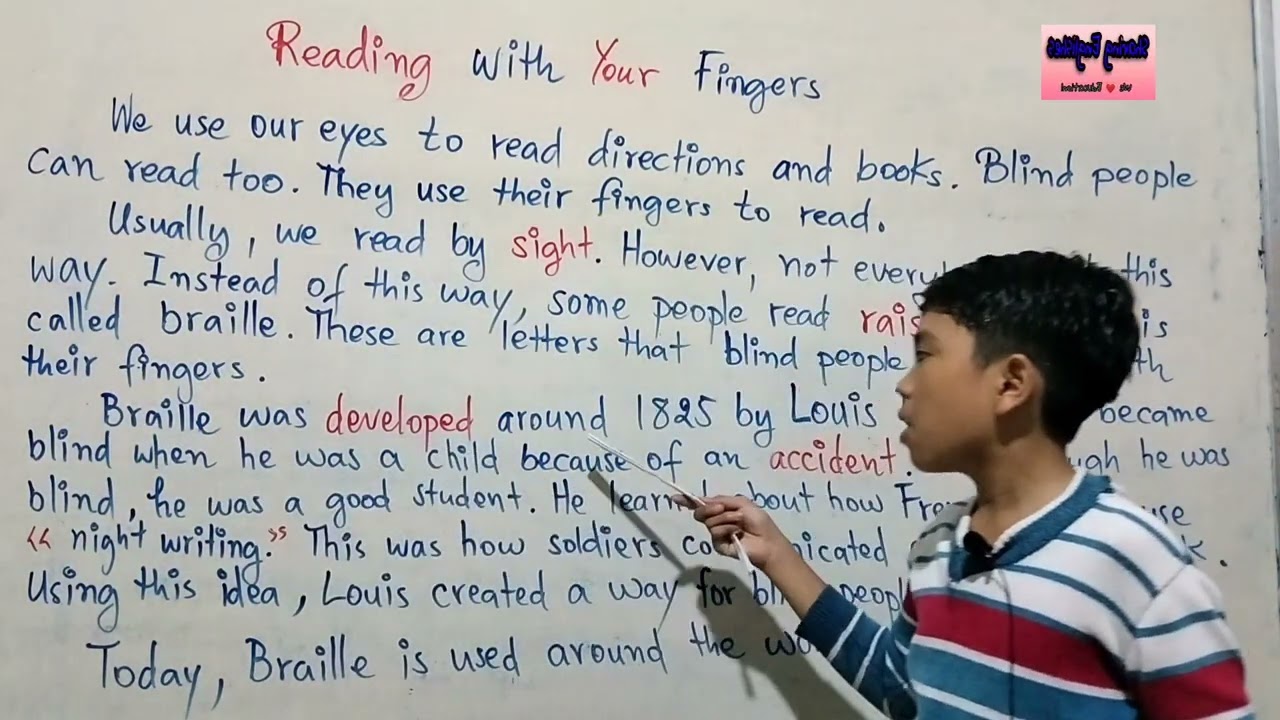 Reading with Your Fingers
We use our eyes to read directions and books. Blind people
can read too. They use their fingers to read.
Usually, we read by sight. However, not this
way. Instead of this way, some people read is
called braille. These are letters that blind people
their fingers.
Braille was developed around 1825 by Louis became
blind when he was a child because of an accident. he was
blind, he was a good student. He about how
"night writing." This was how soldiers
Using this idea, Louis created a way for
Today, Braille is used around the
Sharing English
Education